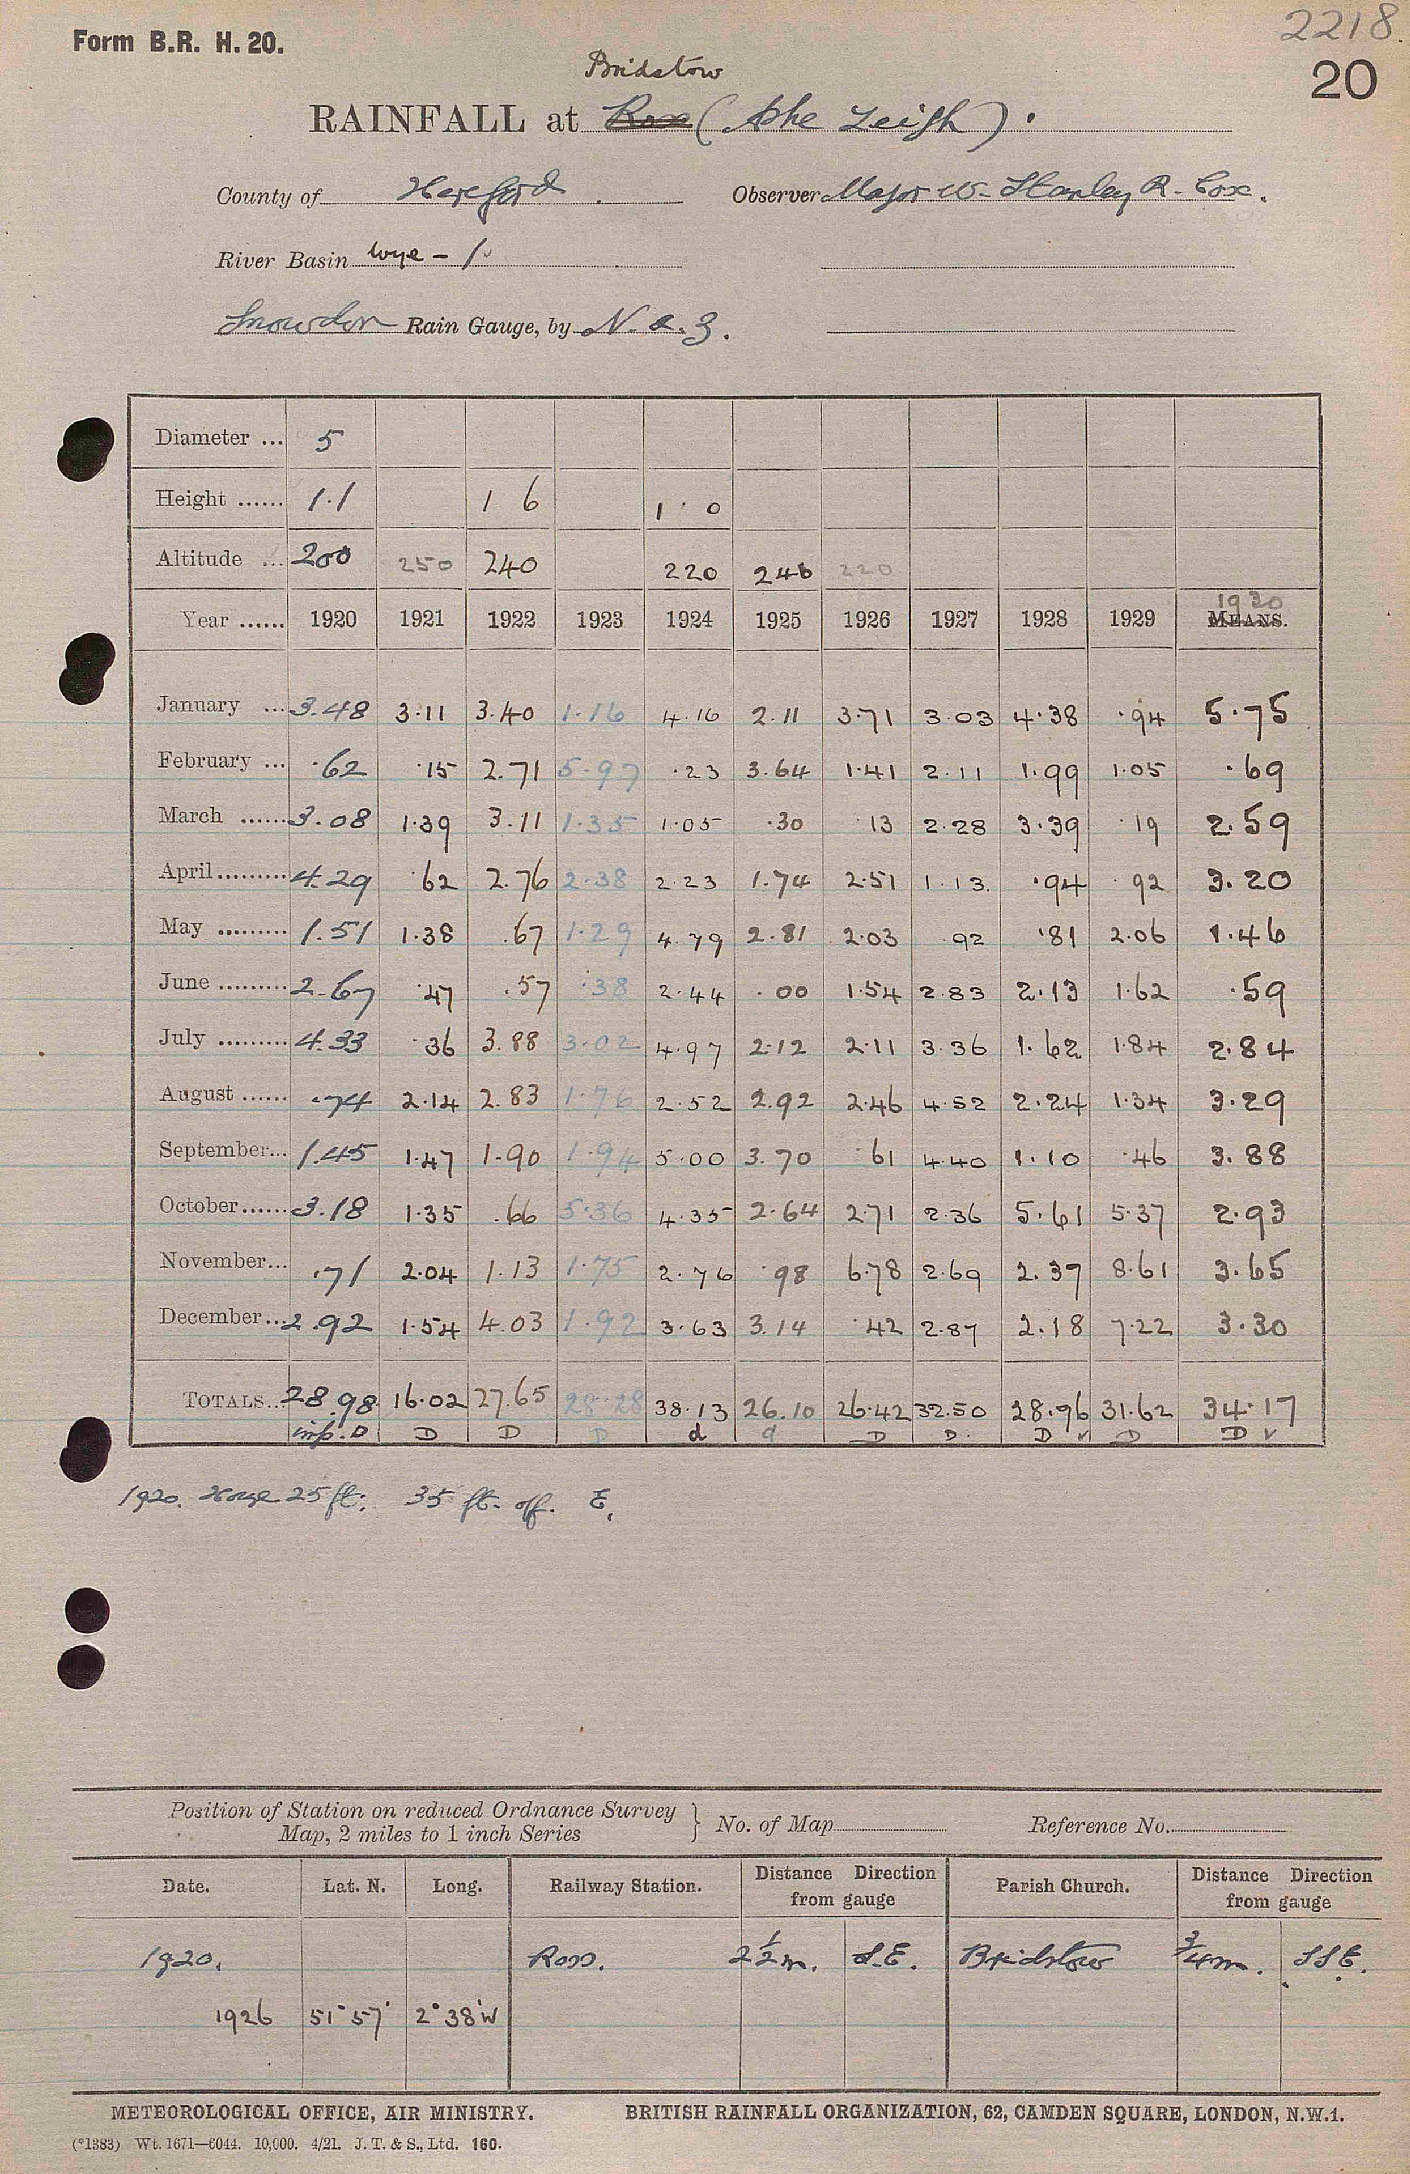 2218.
Form B.R. H. 20.
20
Bridstow
RAINFALL at Ross (Ashe Leigh).
County of Hereford. Observer Major W. Stanley R. Cox.
River Basin Wye - 1.
Snowdon Rain Gauge, by N. & Z.
Diameter ... 5
Height ...... 1.1 1 6 1 · 0
Altitude ... 200 250 240 220 246 220
1930
Year ...... 1920 1921 1922 1923 1924 1925 1926 1927 1928 1929 MEANS.
January ... 3.48 3.11 3.40 1.16 4.16 2.11 3.71 3.03 4.38 .94 5.75
February ... .62 .15 2.71 5.97 .23 3.64 1.41 2.11 1.99 1.05 .69
March ...... 3.08 1.39 3.11 1.35 1.05 .30 .13 2.28 3.39 .19 2.59
April ......... 4.29 .62 2.76 2.38 2.23 1.74 2.51 1.13. .94 .92 3.20
May ......... 1.51 1.38 .67 1.29 4.79 2.81 2.03 .92 .81 2.06 1.46
June ......... 2.67 .47 .57 .38 2.44 .00 1.54 2.83 2.13 1.62 .59
July ......... 4.33 .36 3.88 3.02 4.97 2.12 2.11 3.36 1.62 1.84 2.84
August ...... .74 2.14 2.83 1.76 2.52 2.92 2.46 4.52 2.24 1.34 3.29
September... 1.45 1.47 1.90 1.94 5.00 3.70 .61 4.40 1.10 .46 3.88
October ...... 3.18 1.35 .66 5.36 4.35 2.64 2.71 2.36 5.61 5.37 2.93
November... .71 2.04 1.13 1.75 2.76 .98 6.78 2.69 2.37 8.61 3.65
December... 2.92 1.54 4.03 1.92 3.63 3.14 .42 2.87 2.18 7.22 3.30
TOTALS... 28.98 16.02 27.65 28.28 38.13 26.10 26.42 32.50 28.96 31.62 34.17
D D D D d d D D. D v D D v
1920. House 25 ft: 35 ft. off. E.
Position of Station on reduced Ordnance Survey
Map, 2 miles to 1 inch Series } No. of Map Reference No.
Date. Lat. N. Long. Railway Station. Distance Direction from gauge Parish Church. Distance Direction from gauge
1920. Ross. 2 1/2 m. S.E. Bridstow 3/4 m. SSE.
1926 51°57' 2°38'W
METEOROLOGICAL OFFICE, AIR MINISTRY. BRITISH RAINFALL ORGANIZATION, 62, CAMDEN SQUARE, LONDON, N.W.1.
(*1383) Wt. 1671—6044. 10,000. 4/21. J. T. & S., Ltd. 160.